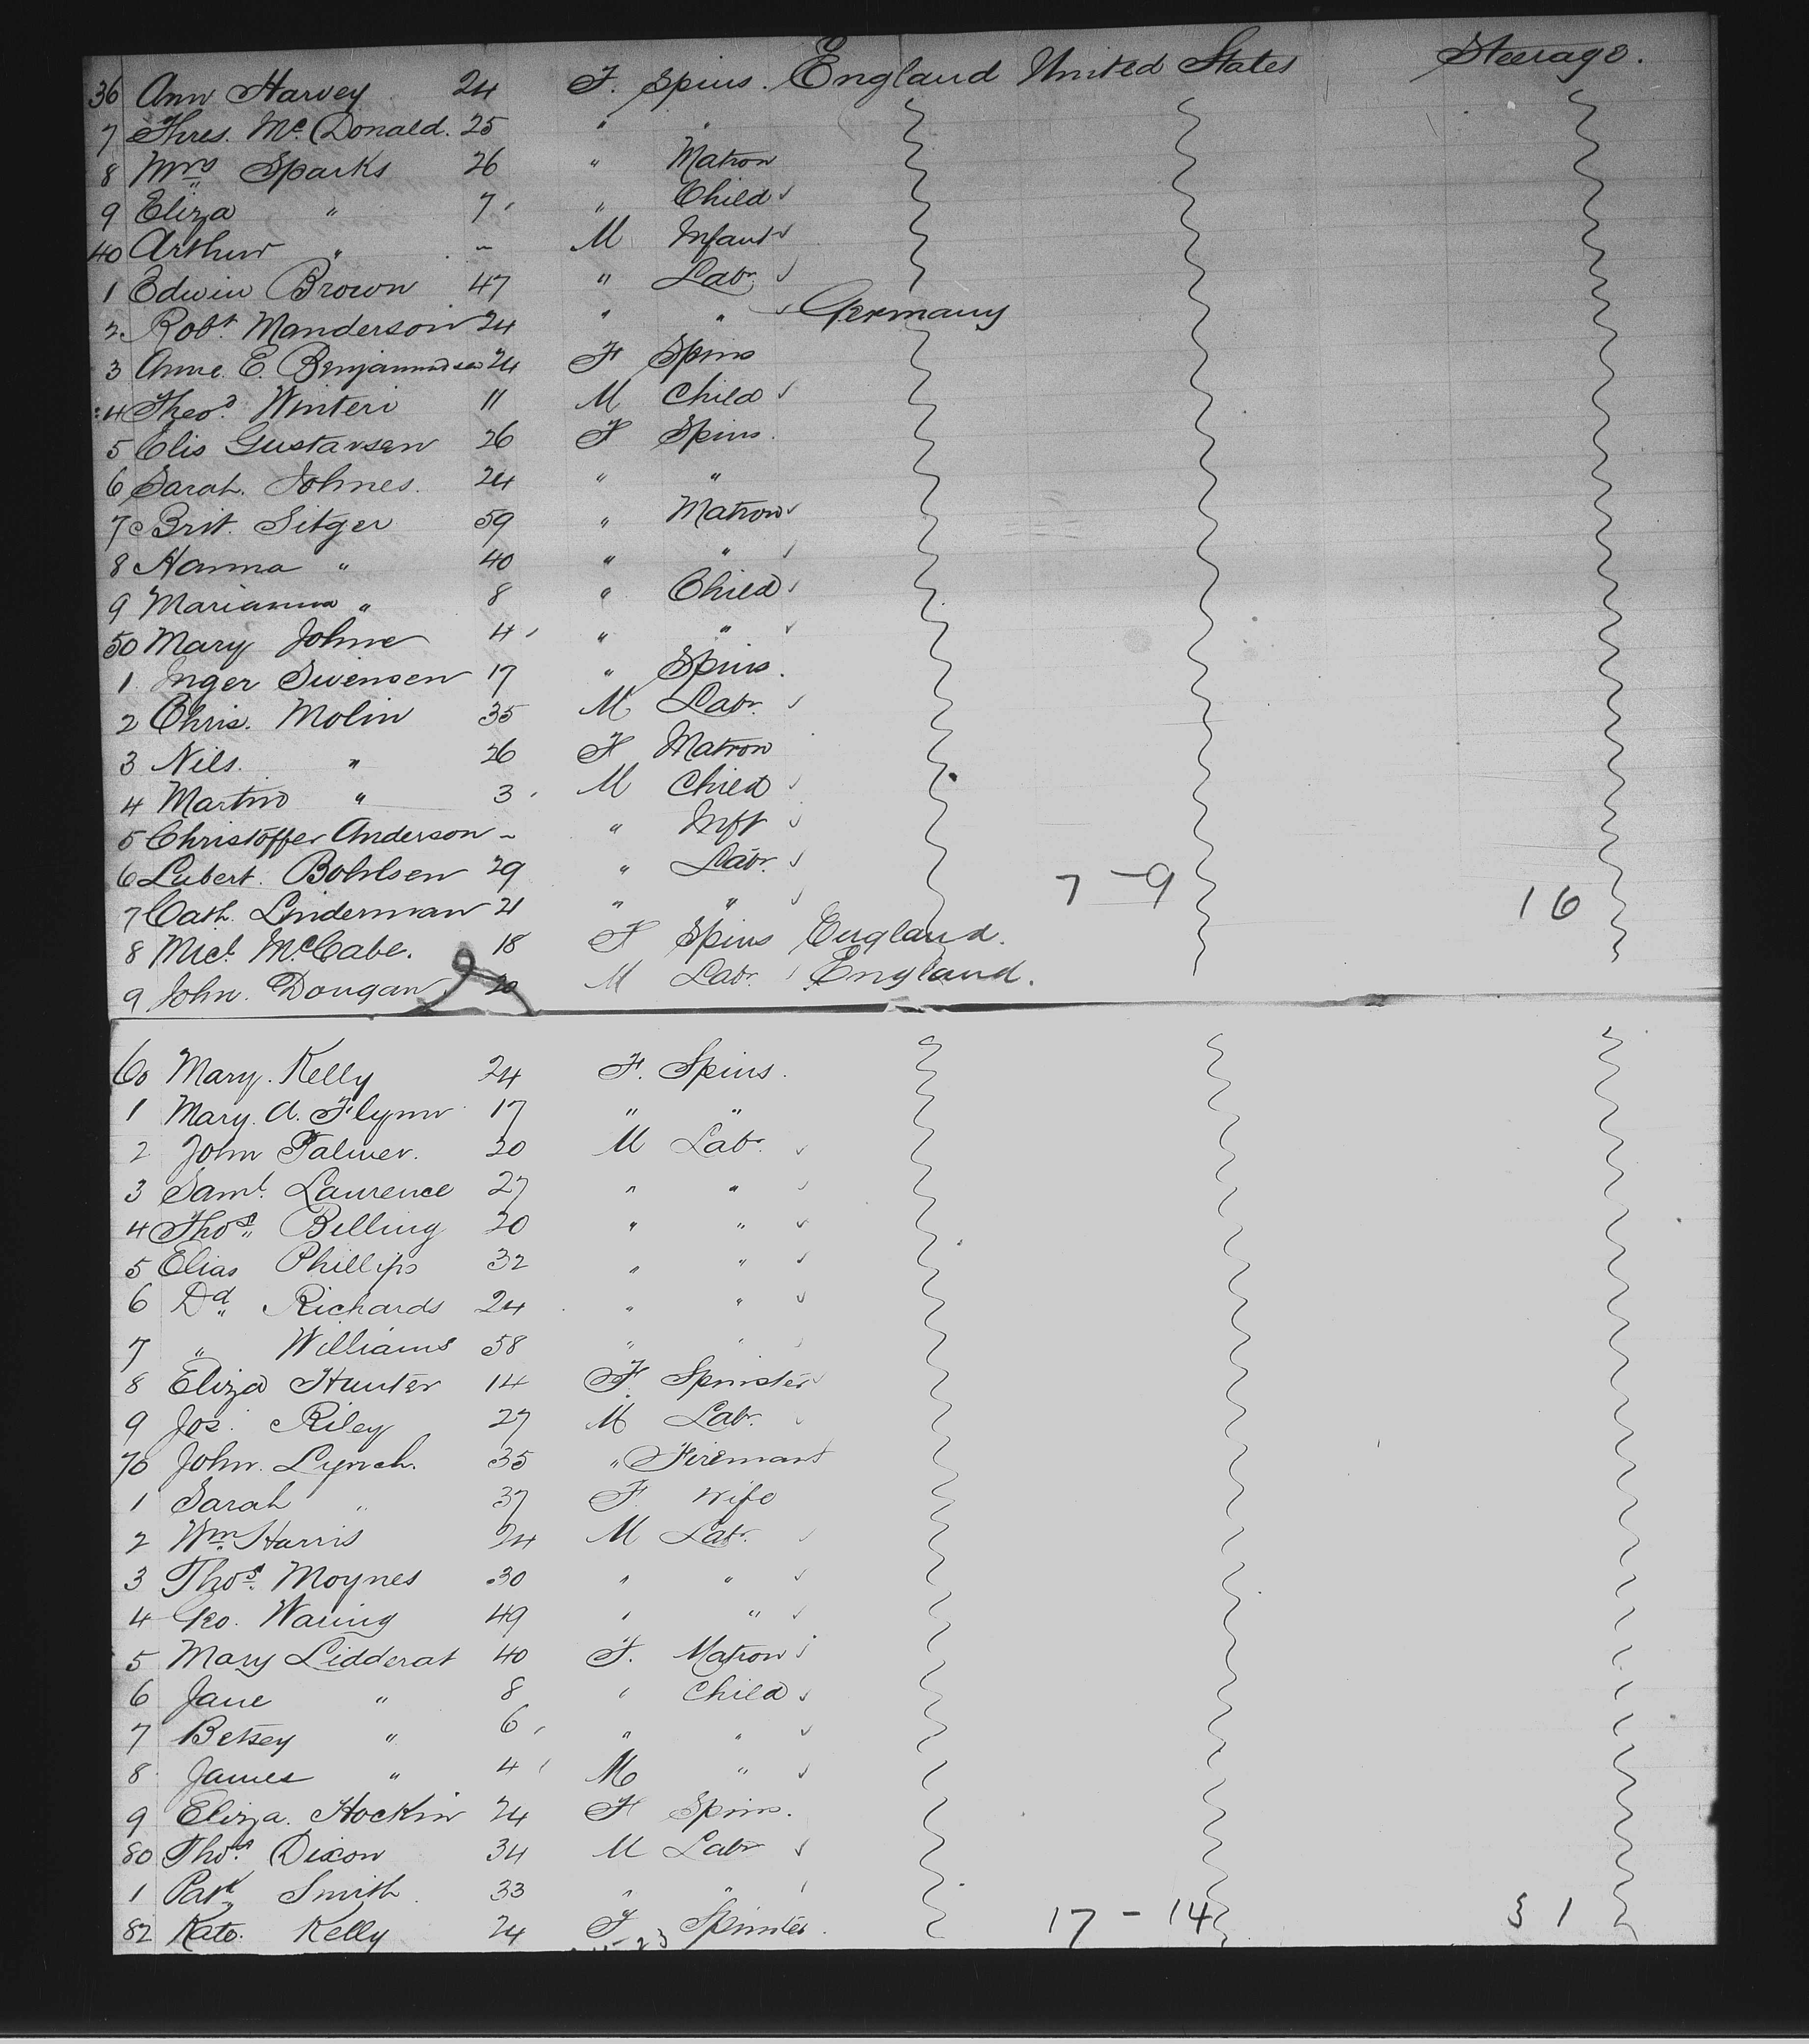 36 Ann Harvey 24 F. Spins. England United States Steerage.
7 Thres. Mc. Donald. 25 " "
8 Mrs Sparks 26 " Matron
9 Eliza " 7 " Child
40 Arthur " ~ M Infant
1 Edwin Brown 47 " Labr.
2 Robt Manderson 24 " " Germany
3 Anne. E. 24 F Spins
4 Theod. Winteri 11 M Child
5 Elis Gustavsen 26 F Spins.
6 Sarah. Johnes. 24 " "
7 Brit. Sitger 59 " Matron
8 Hanna " 40 " "
9 Marianna " 8 " Child
50 Mary Johne 4 " "
1 Inger Swensen 17 " Spins.
2 Chris. Molin 35 M Labr.
3 Nils. " 26 F Matron
4 Martin " 3 M Child
5 Christoffer Anderson ~ " Inft
6 Lubert. Bohlsen 29 " Labr.
7 Cath. Linderman 21 " " 7 - 9 16
8 Micl. McCabe. 18 F Spins England.
9 John. Dougan 20 M Labr. England.
60 Mary. Kelly 24 F. Spins.
1 Mary. A. Flynn 17 " "
2 John Palmer. 20 M Labr.
3 Saml. Laurence 27 " "
4 Thos. Billing 20 " "
5 Elias Phillips 32 " "
6 Dd Richards 24 " "
7 " Williams 58 " "
8 Eliza Hunter 14 F Spinster
9 Jos. Riley 27 M Labr.
70 John. Lynch. 35 " Fireman
1 Sarah " 37 F. Wife
2 Wm Harris 24 M Labr.
3 Thos. Moynes 30 " "
4 Geo. Waring 49 " "
5 Mary Lidderat 40 F. Matron
6 Jane " 8 " Child
7 Betsey " 6 " "
8 James " 4 M "
9 Eliza. Hockin 24 F Spins.
80 Thos. Dixon 34 M Labr
1 Patk Smith 33 " "
82 Kate. Kelly 24 F Spinster. 17 - 14 31